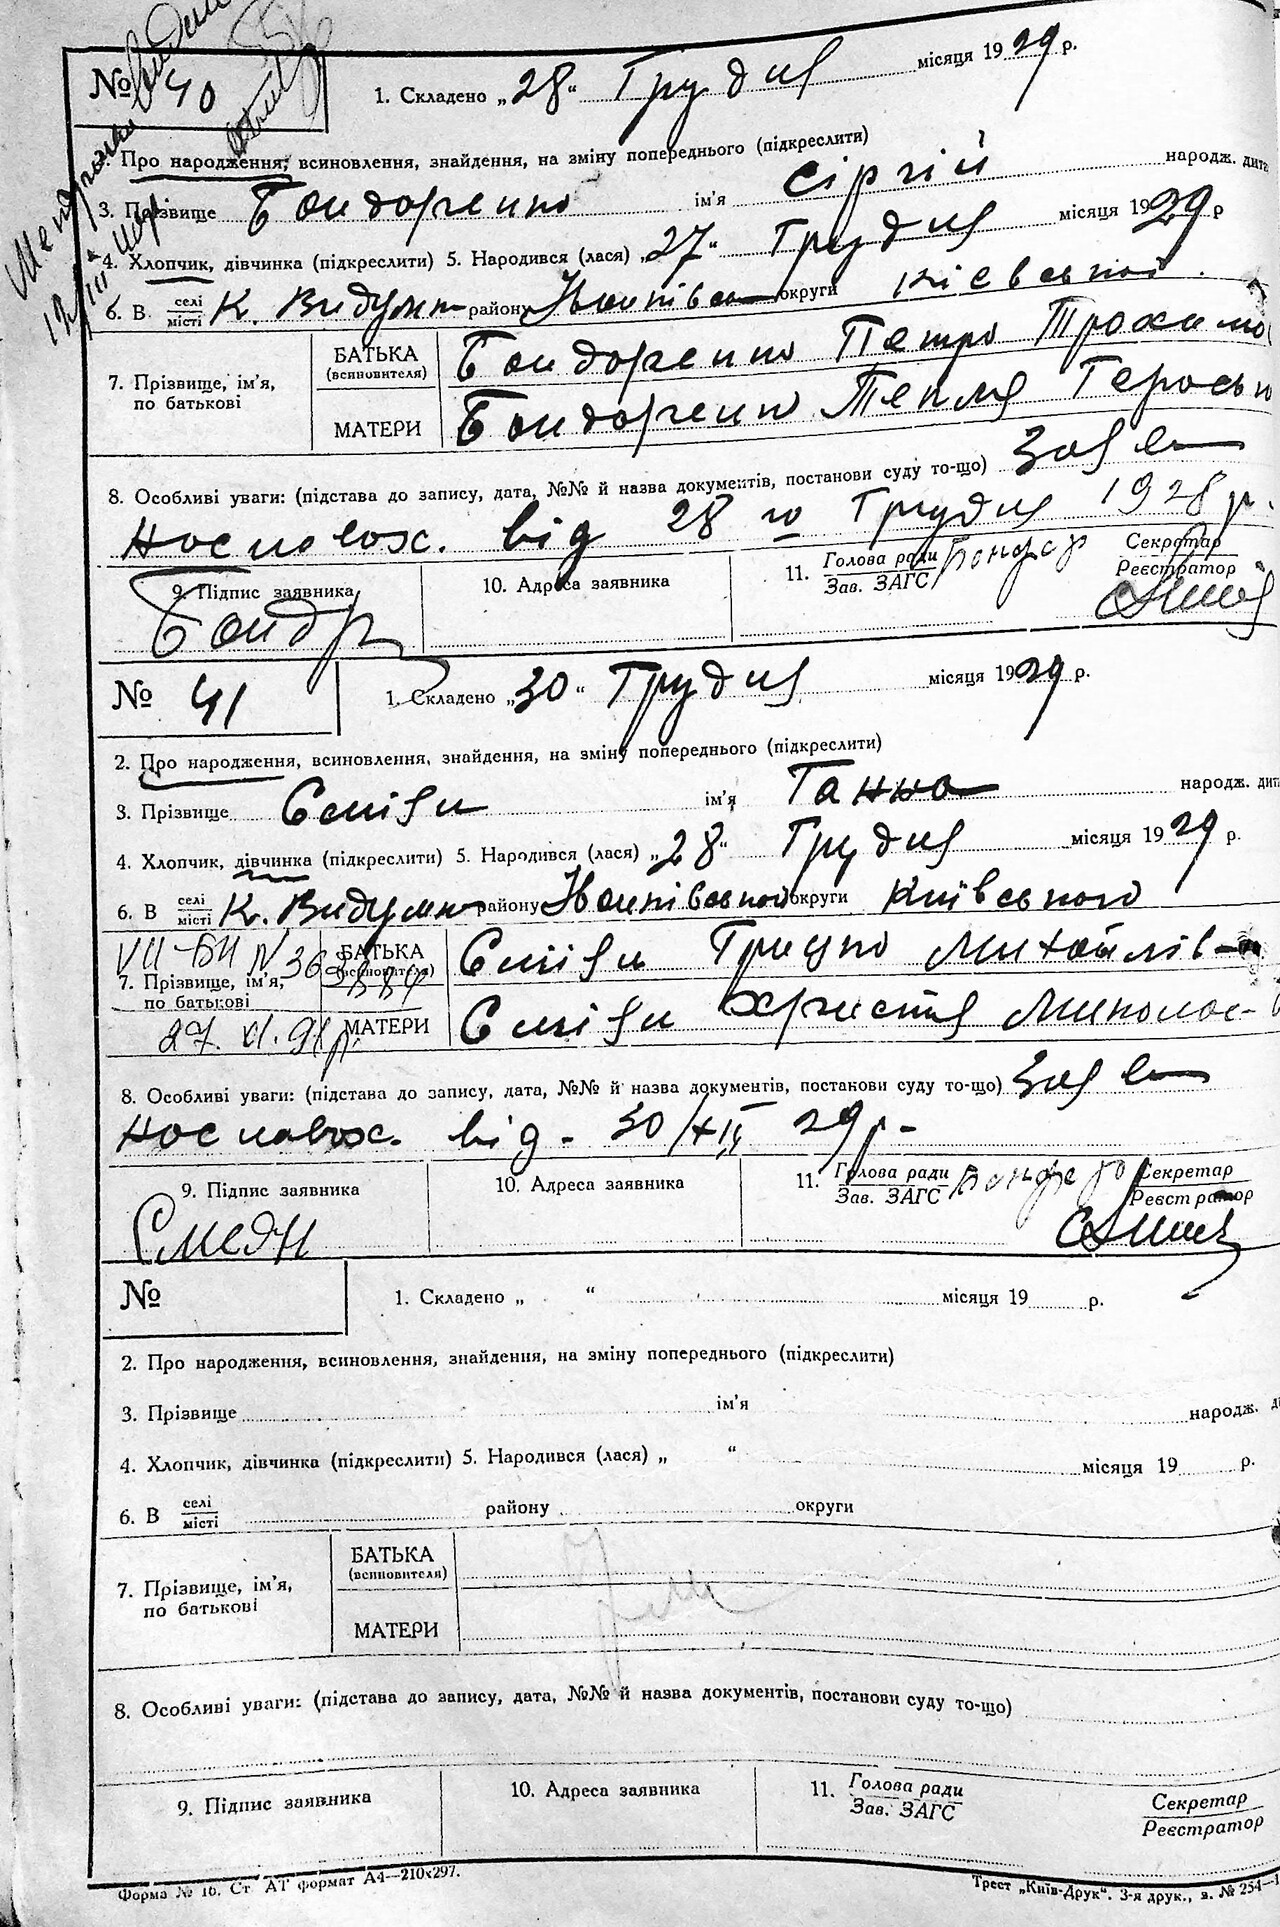 № 40
1. Складено „28“ Грудня місяця 1929 р.
2. Про народження, всиновлення, знайдення, на зміну попереднього (підкреслити)
3. Прізвище Бондаренко ім’я Сіргій народж. дит
4. Хлопчик, дівчинка (підкреслити) 5. Народився (лася) „27“ Грудня місяця 1929 р
6. В селі/місті К. Видумка району Іванківськ округи Кієвської
7. Прізвище, ім’я, по батькові
БАТЬКА (всиновителя) Бондаренко Петро Трохимо
МАТЕРИ Бондаренко Текля Гараськ
8. Особливі уваги: (підстава до запису, дата, №№ й назва документів, постанови суду то-що) Заяв
від 28 го Грудня 1928 р.
9. Підпис заявника
10. Адреса заявника
11. Голова ради/Зав. ЗАГС Секретар/Реєстратор
№ 41
1. Складено „30“ Грудня місяця 1929 р.
2. Про народження, всиновлення, знайдення, на зміну попереднього (підкреслити)
3. Прізвище ім’я Ганна народж. дит
4. Хлопчик, дівчинка (підкреслити) 5. Народився (лася) „28“ Грудня місяця 1929 р.
6. В селі/місті К. Видумка району Іванківської округи Київського
7. Прізвище, ім’я, по батькові
БАТЬКА (всиновителя) Грицко Михайлів
МАТЕРИ Христя Миколає
27.XI.91р.
8. Особливі уваги: (підстава до запису, дата, №№ й назва документів, постанови суду то-що) Заяв
від 30/XII 29 р.
9. Підпис заявника
10. Адреса заявника
11. Голова ради/Зав. ЗАГС Секретар/Реєстратор
№
1. Складено „ “ місяця 19 р.
2. Про народження, всиновлення, знайдення, на зміну попереднього (підкреслити)
3. Прізвище ім’я народж. д
4. Хлопчик, дівчинка (підкреслити) 5. Народився (лася) „ “ місяця 19 р.
6. В селі/місті району округи
7. Прізвище, ім’я, по батькові
БАТЬКА (всиновителя)
МАТЕРИ
8. Особливі уваги: (підстава до запису, дата, №№ й назва документів, постанови суду то-що)
9. Підпис заявника
10. Адреса заявника
11. Голова ради/Зав. ЗАГС Секретар/Реєстратор
Форма № 16. Ст. АТ формат А4—210х297.
Трест „Київ-Друк“. 3-я друк., з. № 254—1